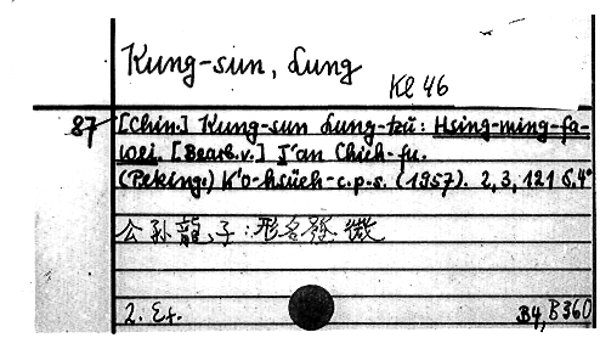 Kung-sun, Lung
Kl 46
87 [Chin.] Kung-sun Lung-tzŭ: Hsing-ming-fa-
wei. [Bearb.v.] T'an Chieh-fu.
(Peking:) K'o-hsüeh-c.p.s. (1957). 2,3,121 S. 4°
公孙龍子:形名發微
2. Ex.
B4, B360